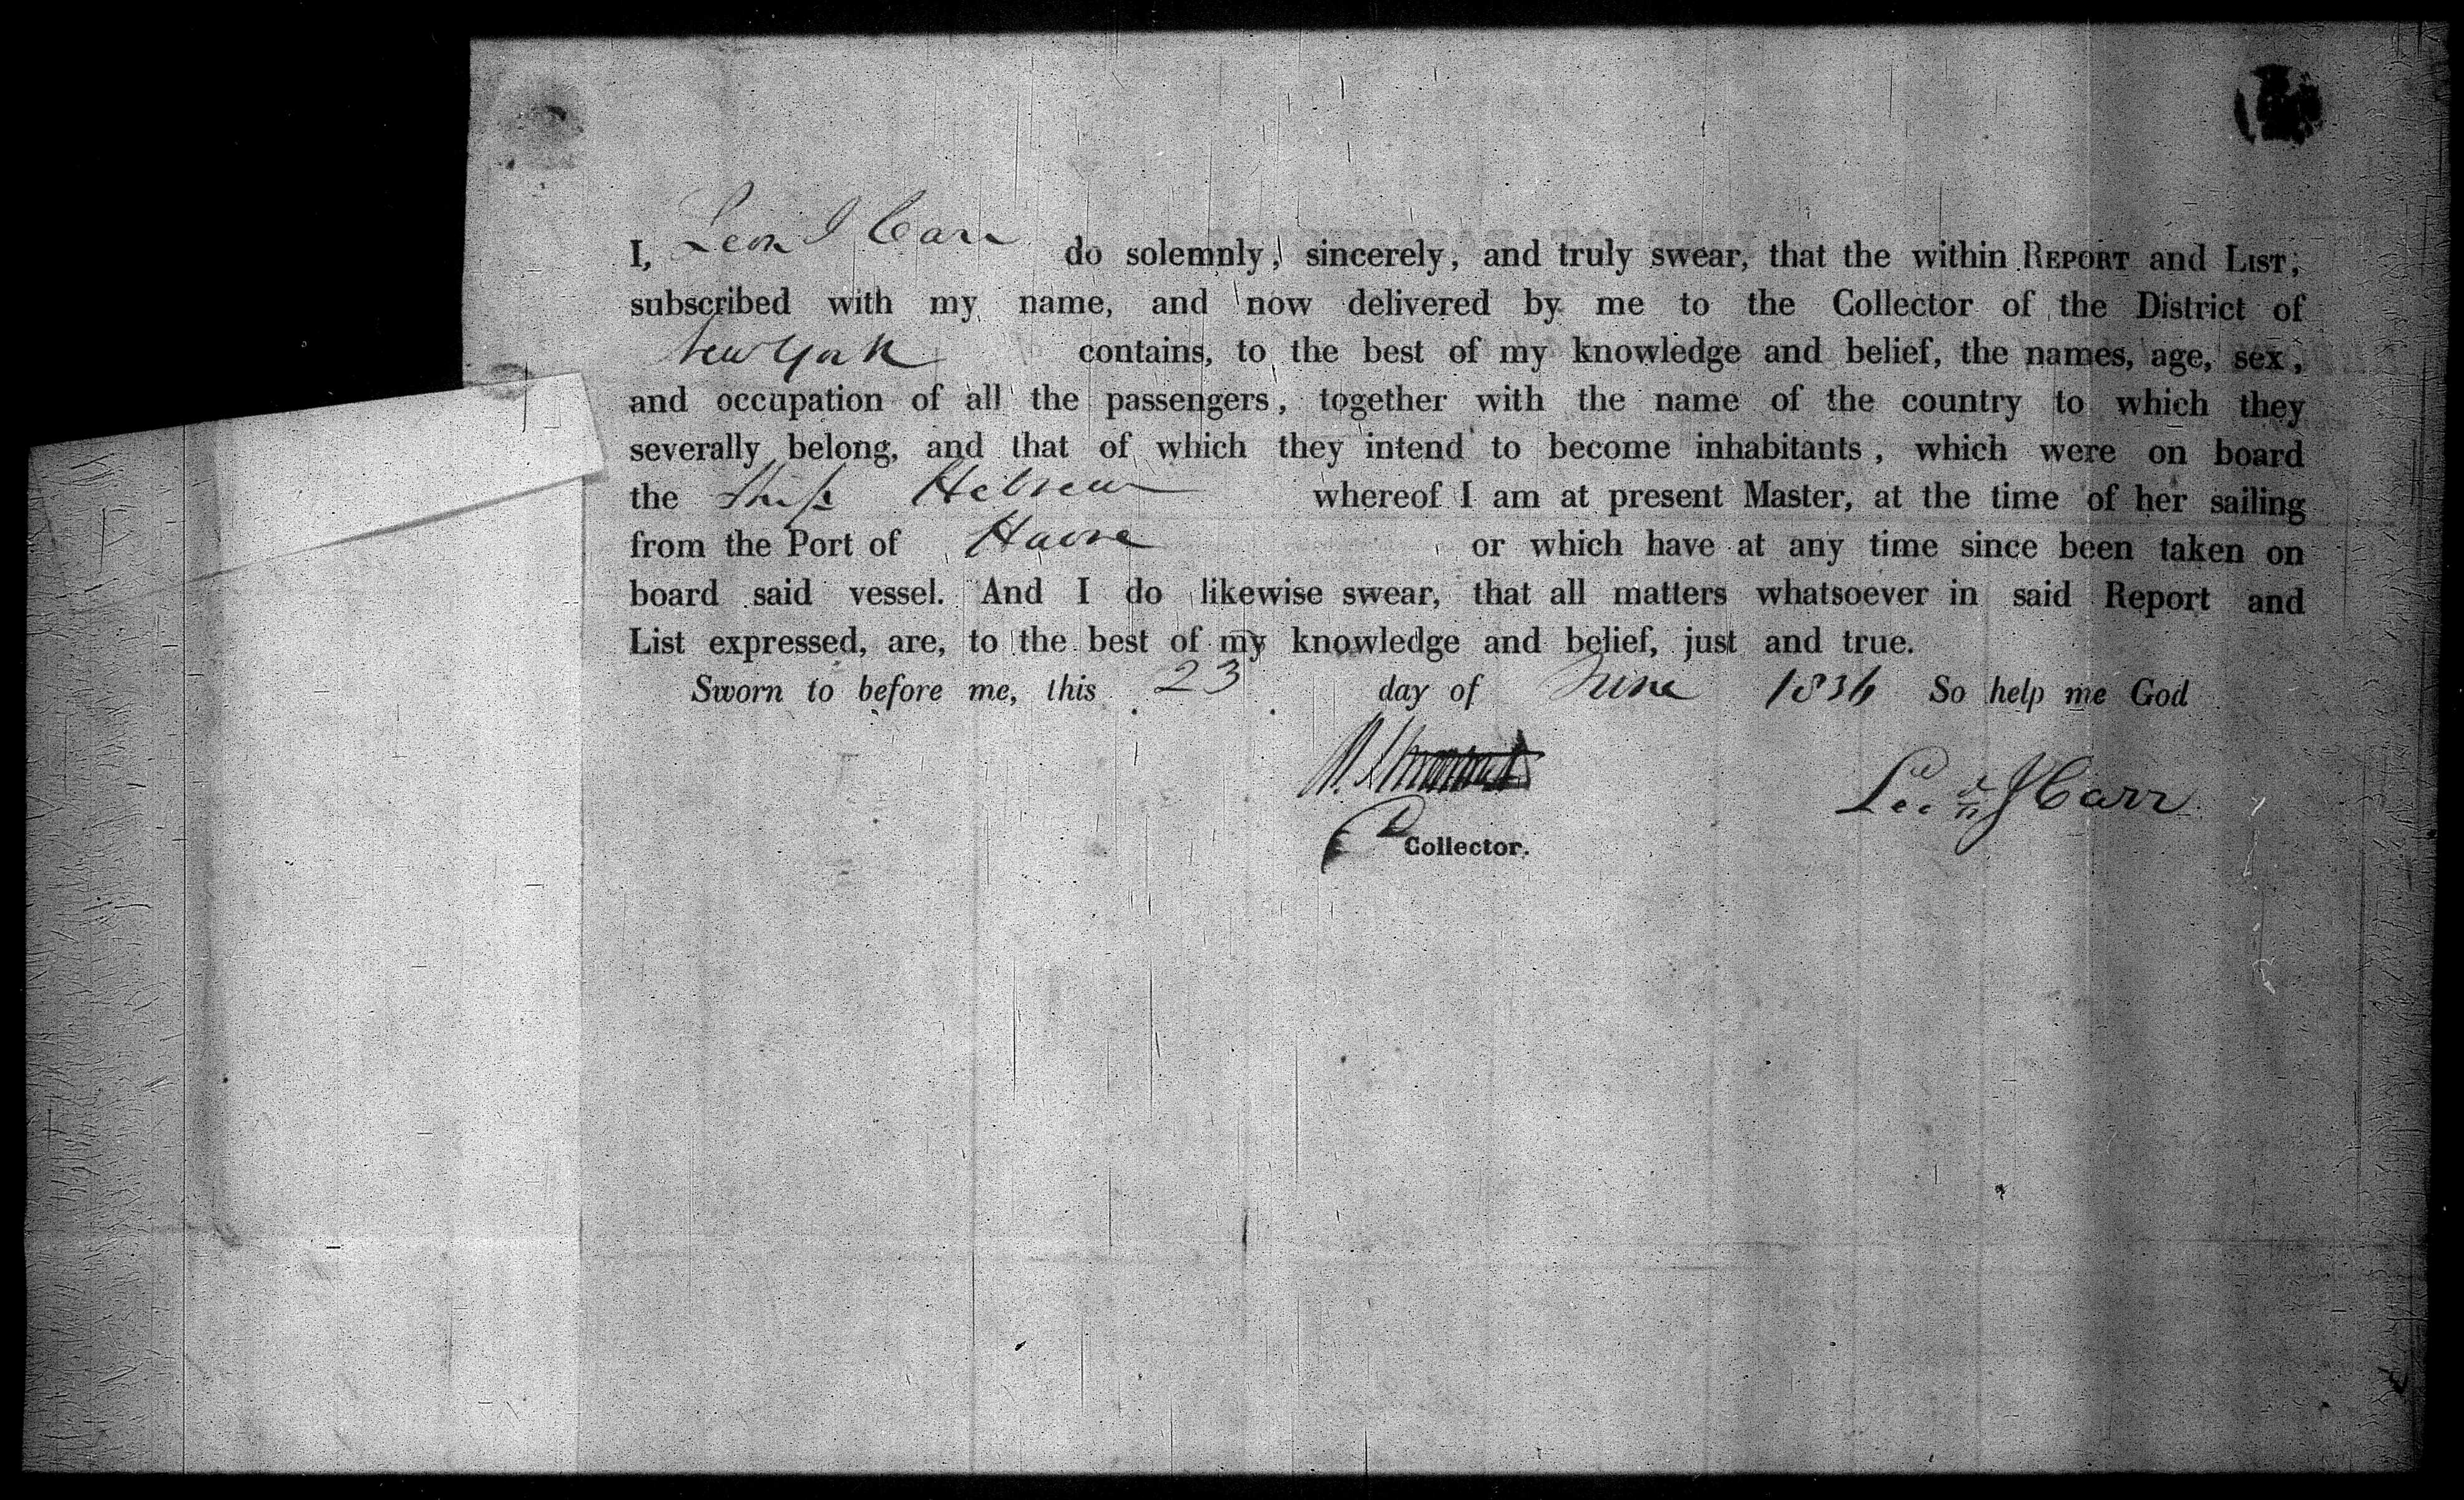 I, Leon J Carr do solemnly, sincerely, and truly swear, that the within REPORT and LIST,
subscribed with my name, and now delivered by me to the Collector of the District of
New York contains, to the best of my knowledge and belief, the names, age, sex,
and occupation of all the passengers, together with the name of the country to which they
severally belong, and that of which they intend to become inhabitants, which were on board
the Ship Hebrew whereof I am at present Master, at the time of her sailing
from the Port of Havre or which have at any time since been taken on
board said vessel. And I do likewise swear, that all matters whatsoever in said Report and
List expressed, are, to the best of my knowledge and belief, just and true.
Sworn to before me, this 23 day of June 1836 So help me God
J Carr
Collector.